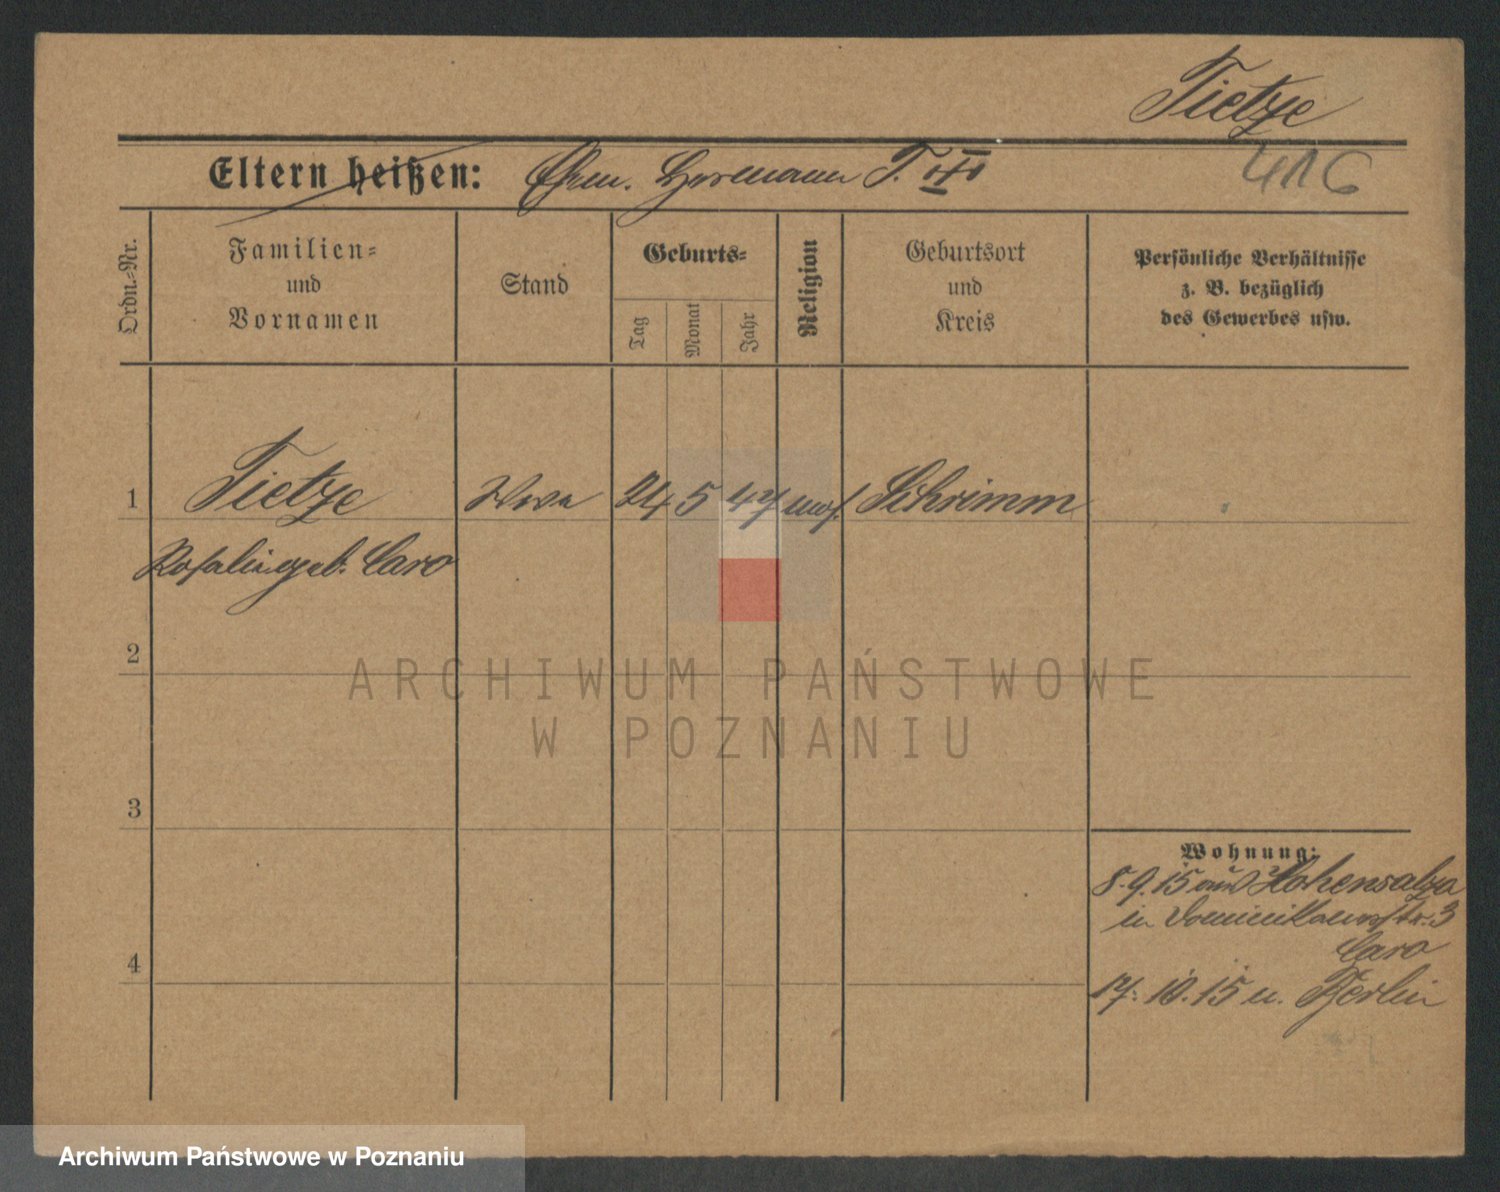 Tietze
Eltern heißen: Ehem. Hermann T. III
416
Ordn.-Nr.
Familien-
und
Vornamen
Stand
Geburts-
Tag
Monat
Jahr
Religion
Geburtsort
und
Kreis
Persönliche Verhältnisse
z. B. bezüglich
des Gewerbes usw.
1 Tietze Wwe 24 5 47 mos. Schrimm
Rosalie geb. Caro
2
3
4
Wohnung:
8.9.15 aus Hohensalza
in Dominikanerstr. 3
Caro
17.10.15 n. Berlin
ARCHIWUM PAŃSTWOWE
W POZNANIU
Archiwum Państwowe w Poznaniu